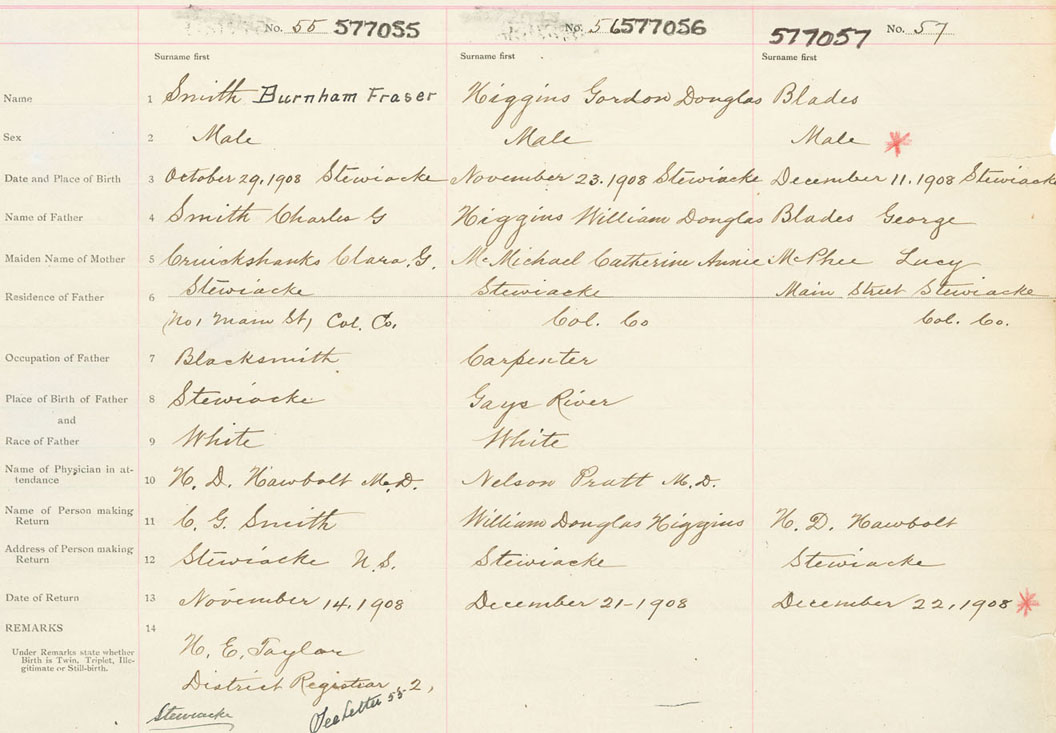 No. 55 577055 No. 56 577056 577057 No. 57
Surname first Surname first Surname first
Name 1 Smith Burnham Fraser Higgins Gordon Douglas Blades
Sex 2 Male Male Male
Date and Place of Birth 3 October 29, 1908 Stewiacke November 23. 1908 Stewiacke December 11. 1908 Stewiacke
Name of Father 4 Smith Charles G Higgins William Douglas Blades George
Maiden Name of Mother 5 Cruickshanks Clara. G. McMichael Catherine Annie McPhee Lucy
Residence of Father 6 Stewiacke Stewiacke Main Street Stewiacke
No 1 Main St, Col. Co. Col. Co Col. Co.
Occupation of Father 7 Blacksmith Carpenter
Place of Birth of Father 8 Stewiacke Gays River
and
Race of Father 9 White White
Name of Physician in at-
tendance 10 H. D. Hawbolt M.D. Nelson Pratt M.D.
Name of Person making
Return 11 C. G. Smith William Douglas Higgins H. D. Hawbolt
Address of Person making
Return 12 Stewiacke N.S. Stewiacke Stewiacke
Date of Return 13 November 14, 1908 December 21-1908 December 22, 1908
REMARKS 14
Under Remarks state whether
Birth is Twin, Triplet, Ille-
gitimate or Still-birth.
H. E. Taylor
District Registrar
Stewiacke See Letter 55-2,